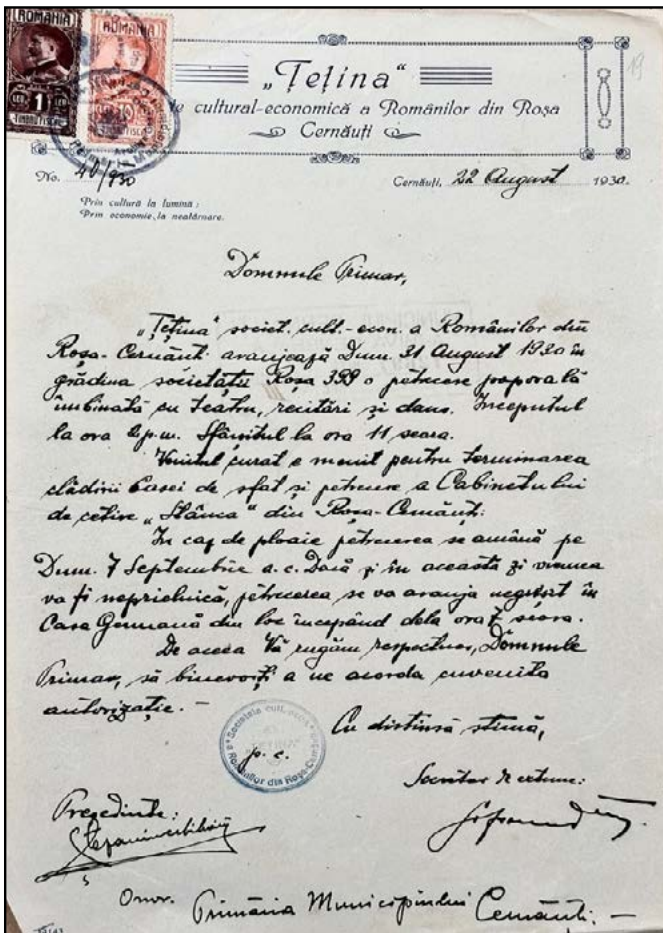 ROMANIA
ROMANIA
LEU 1 LEU
TIMBRU FISCAL
TIMBRU FISCAL
19
„Țețina“
cultural-economică a Românilor din Roșa
Cernăuți
No. 40/930
Cernăuți, 22 August 1930.
Prin cultură la lumină;
Prin economie, la neatârnare.
Domnule Primar,
„Țețina" societ. cult.-econ. a Românilor din
Roșa-Cernăuți aranjează Dum. 31 August 1930 în
grădina societății Roșa 399 o petrecere poporală
îmbinată cu teatru, recitări și dans. Începutul
la ora 2 p.m. Sfârșitul la ora 11 seara.
Venitul curat e menit pentru terminarea
clădirii Casei de sfat și petrecere a Cabinetului
de cetire „Stânca" din Roșa-Cernăuți.
In caz de ploaie petrecerea se amână pe
Dum. 7 Septembrie a. c. Dacă și în această zi vremea
va fi neprielnică, petrecerea se va aranja negreșit în
Casa Germană din loc începând dela ora 7 seara.
De aceea Vă rugăm respectuos, Domnule
Primar, să binevoiți a ne acorda cuvenita
autorizație.-
Cu distinsă stimă,
p. c.
Societate cult.
a Românilor din Roșa
Secretar
Prezedinte:
Onor. Primăria Municipiului Cernăuți.-